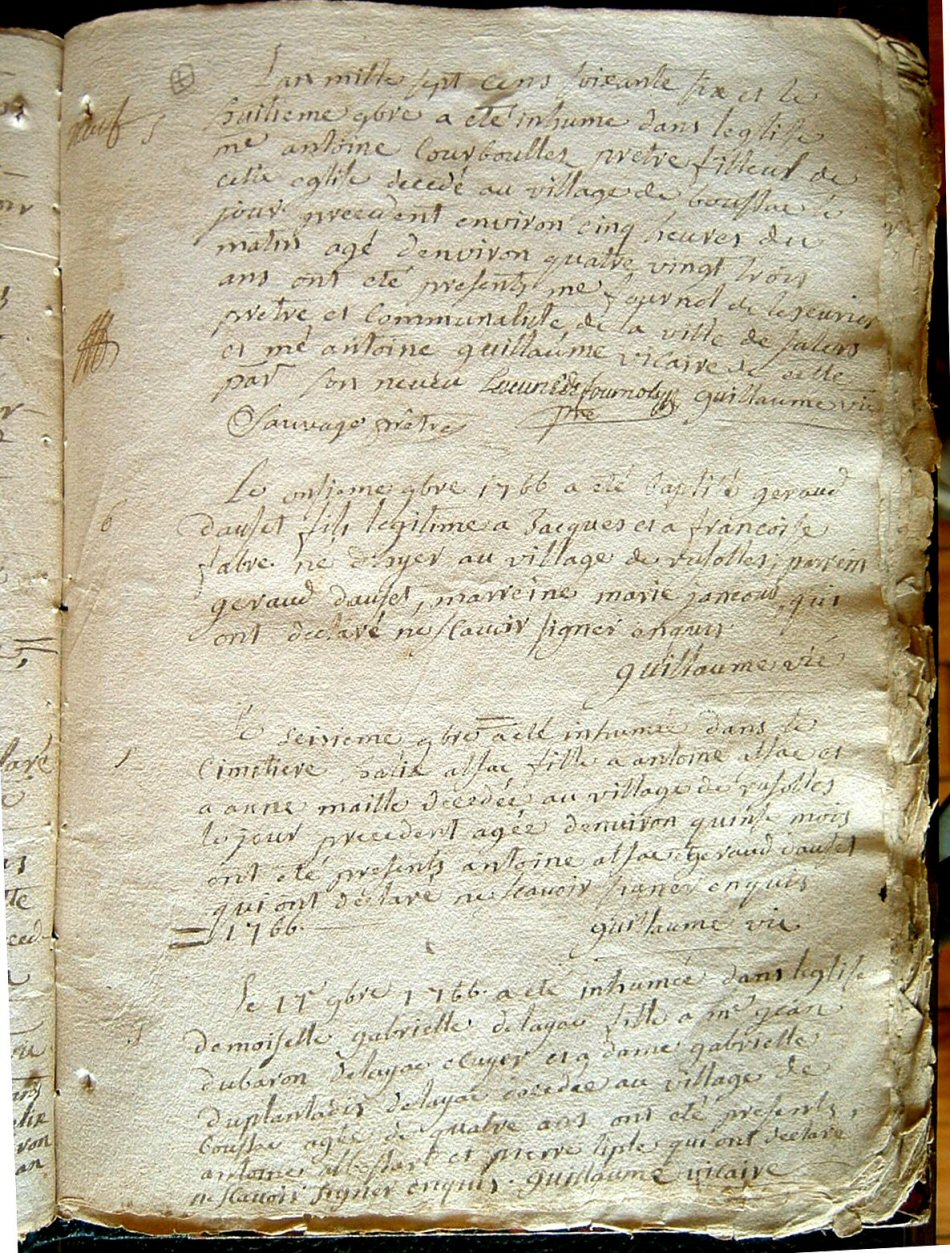 L'an mille sept cens soixante six et le
huitieme gbre a eté inhumé dans leglise
me antoine Courboulles pretre filleul de
cette eglise decedé au village de boussac le
jour precedent environ cinq heures du
matin agé denviron quatre vingt trois
ans ont eté presents me fournol de
pretre et Communaliste de la ville de salers
et me antoine guillaume vicaire de cette
parr son neveu guillaume vic
Sauvage prêtre pre
Le onsieme gbre 1766 a eté baptisé geraud
dauset fils legitime a Jacques et a francoise
fabre ne d'hyer au village de rusolles, parrein
geraud dauset, marreine marie qui
ont declaré ne scavoir signer enquis
guillaume vic
6
le seisieme gbre a eté inhumée dans le
Cimitiere fille a antoine et
a anne maille decedée au village de rusolles
le jour precedent agée denviron quinse mois
ont eté presents antoine et geraud dauset
qui ont declaré ne scavoir signer enquis
= 1766. guillaume vic
le 17e gbre 1766 a eté inhumée dans leglise
demoiselle gabrielle delayac fille a mre jean
dubaron delayac ecuyer et a dame gabrielle
duplantadis delayac decedee au village de
boussac agée de quatre ans ont eté presents,
antoine et pierre qui ont declaré
ne scavoir signer enquis. guillaume vicaire